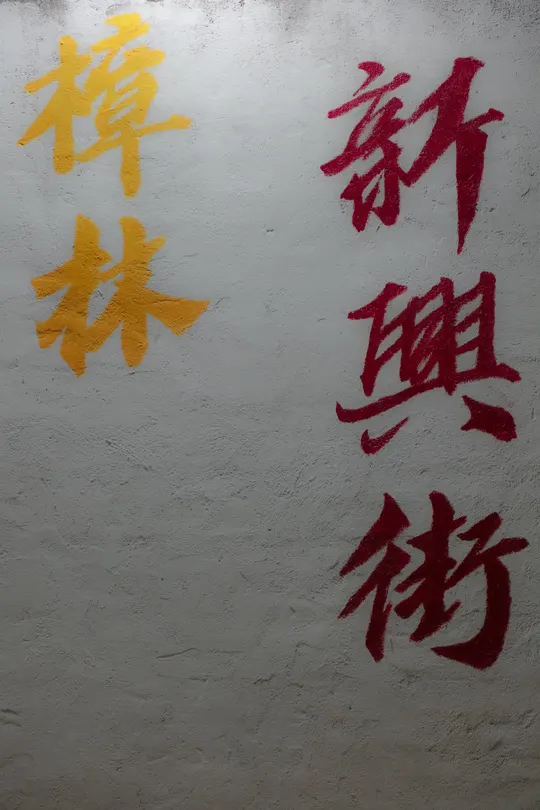 新興街
樟林